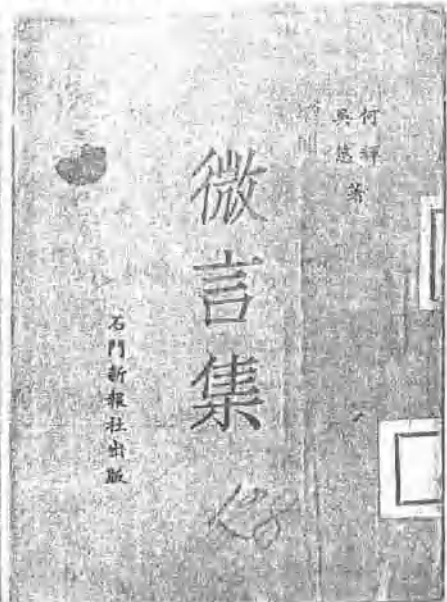 何祥
吳悠 著
微言集
石門新報社出版